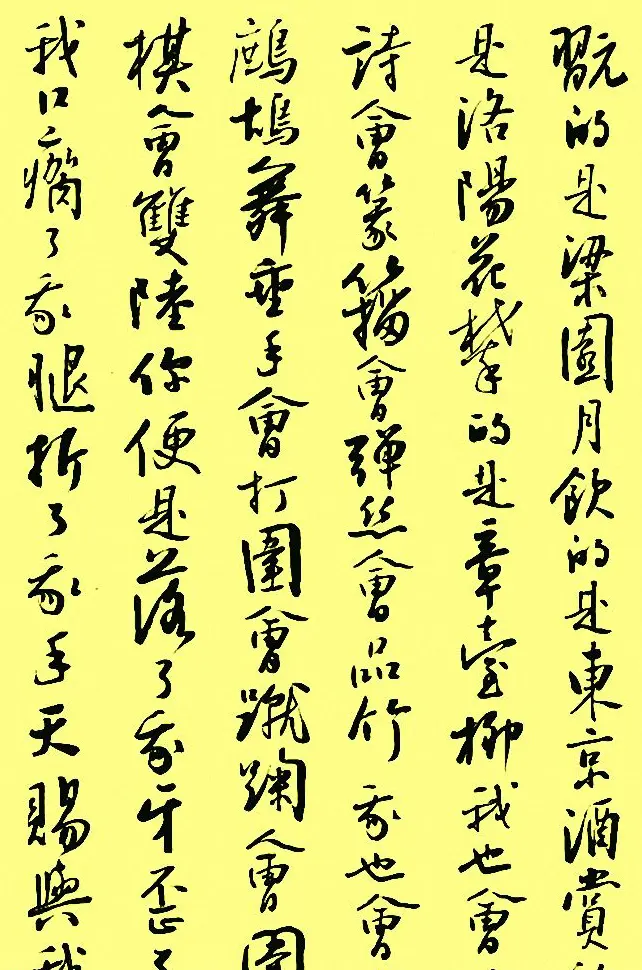 翫的是梁園月飲的是東京酒賞
是洛陽花攀的是章臺柳我也會
詩會篆籀會彈絲會品竹我也會
鷓鴣舞垂手會打圍會蹴踘會圍
棋會雙陸你便是落了我牙歪了
我口瘸了我腿折了我手天賜與我